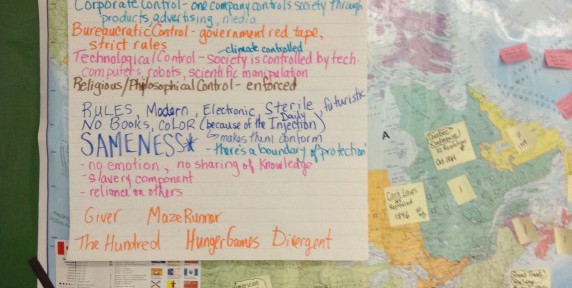 Corporate Control - one company controls society through
products, advertising, media
Bureaucratic Control - government red tape,
strict rules
climate controlled
Technological Control - society is controlled by tech.
computers, robots, scientific manipulation
Religious/Philosophical Control - enforced
RULES, Modern, Electronic, Sterile, futuristic
NO Books, COLOR (because of the Daily Injection)
SAMENESS* makes them conform
- there's a boundary of protection
- no emotion, no sharing of knowledge
- slavery component
- reliance on others
Giver Maze Runner
The Hundred Hunger Games Divergent
A
Corn Laws
are
1846
1